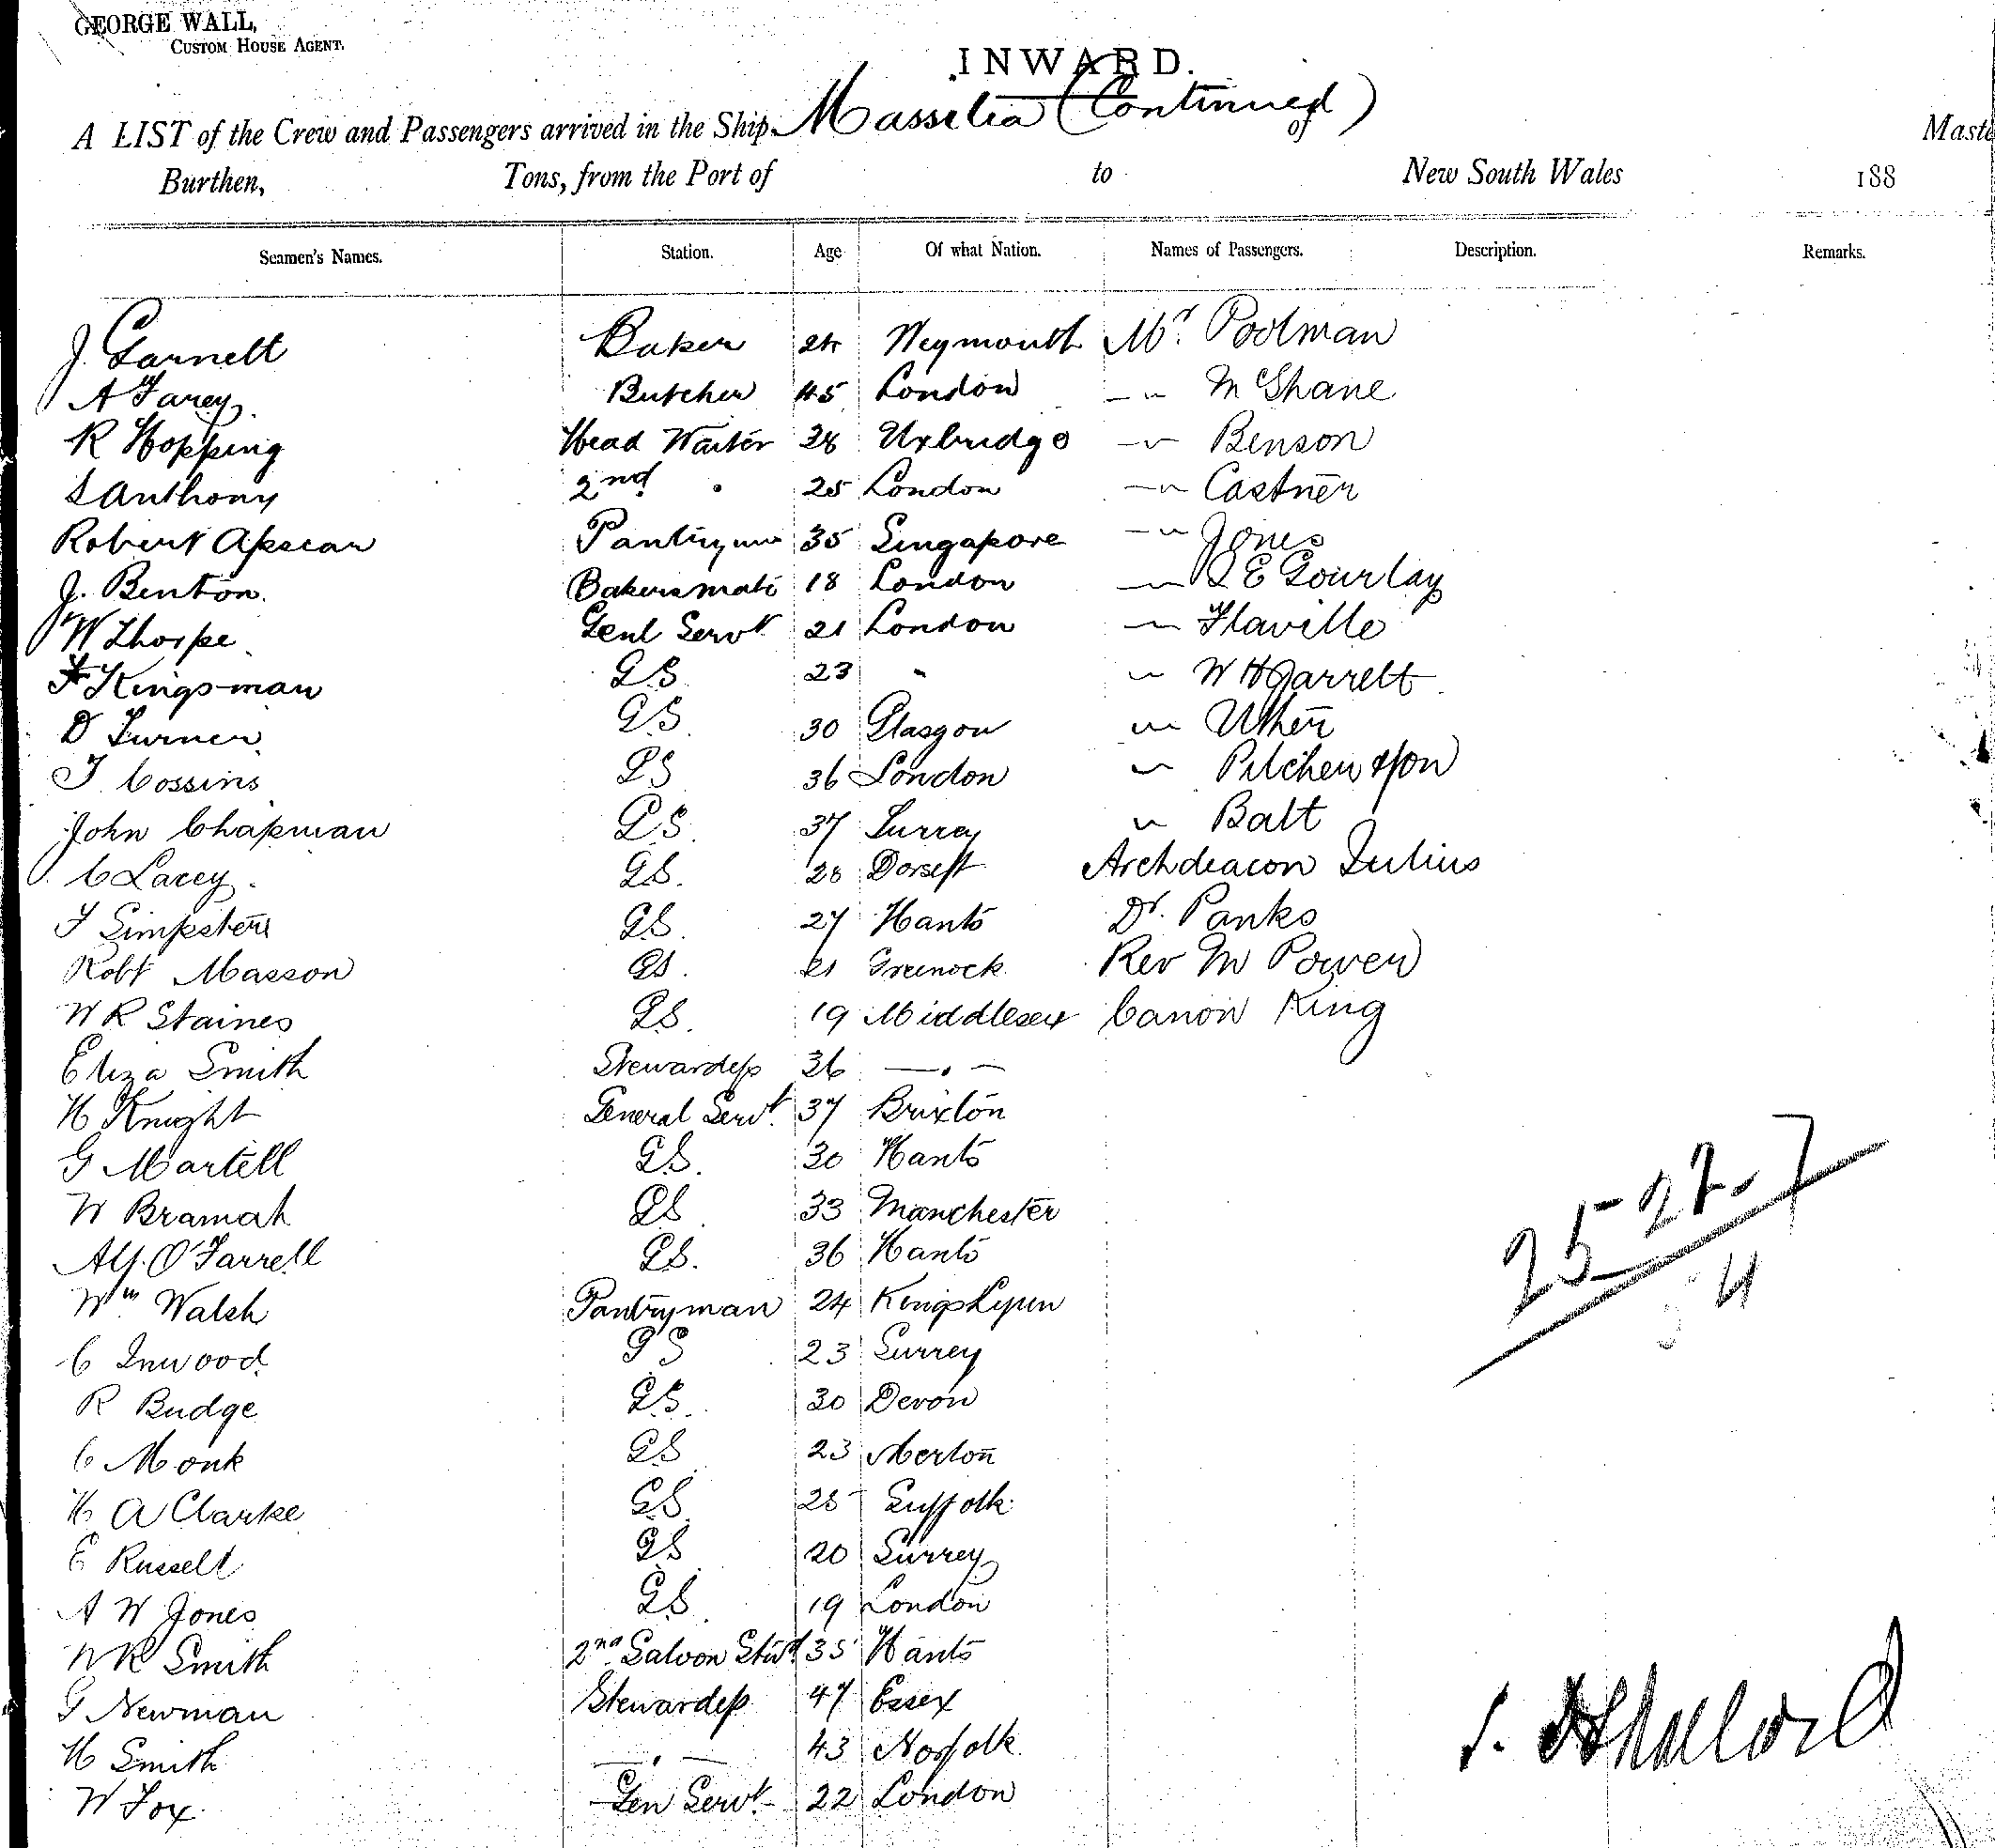 GEORGE WALL,
CUSTOM HOUSE AGENT.
INWARD.
A LIST of the Crew and Passengers arrived in the Ship Massilia (Continued) of Maste
Burthen, Tons, from the Port of to New South Wales 188
Seamen's Names. Station. Age Of what Nation. Names of Passengers. Description. Remarks.
J. Garnett Baker 24 Weymouth Mr. Poolman
A Farey Butcher 45 London — " McShane
R Hopping Head Waiter 38 Uxbridge — " Benson
S Anthony 2nd " 25 London — " Castner
Robert Apscar Pantryman 35 Singapore — " Jones
J. Benton. Bakersmate 18 London — " E Gourlay
W Thorpe Genl Servt 21 London — " Flaville
F Kingsman GS 23 " " W H Garrett
D Turner GS 30 Glasgow " Uther
J Cossins GS 36 London " Pilcher & son
John Chapman GS 37 Surrey " Batt
C Lacey. GS. 28 Dorset Archdeacon Julius
F Simpster GS. 27 Hants Dr. Panks
Robt Masson GS. 21 Greenock Rev M Power
W R Staines GS. 19 Middlesex Canon King
Eliza Smith Stewardess 36 — " —
H Knight General Servt. 37 Brixton
G Martell GS. 30 Hants
W Bramah GS 33 Manchester
Alf. O'Farrell GS. 36 Hants
Wm Walsh Pantryman 24 Kings Lynn
C Inwood GS 23 Surrey
R Budge GS. 30 Devon
C Monk GS 23 Merton
H A Clarke GS 25 Suffolk
E Russell GS 20 Surrey
A W Jones GS 19 London
W R Smith 2nd Saloon Stwd 35 Hants
G Newman Stewardess 47 Essex
H Smith — " — 43 Norfolk
W Fox Gen Servt. 22 London